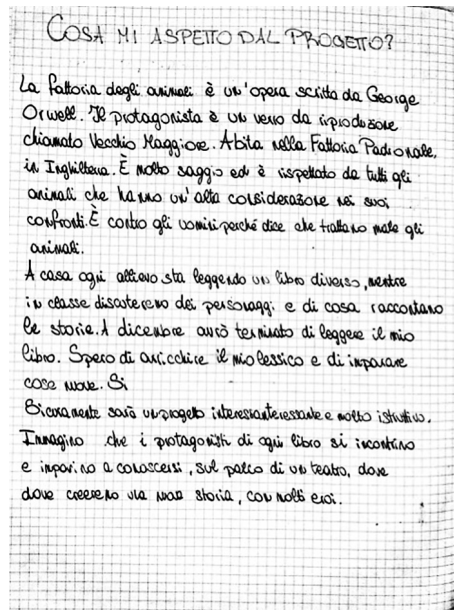 COSA MI ASPETTO DAL PROGETTO?
La Fattoria degli animali è un'opera scritta da George
Orwell. Il protagonista è un verro da riproduzione
chiamato Vecchio Maggiore. Abita nella Fattoria Padronale,
in Inghilterra. È molto saggio ed è rispettato da tutti gli
animali che hanno un'alta considerazione nei suoi
confronti. È contro gli uomini perché dice che trattano male gli
animali.
A casa ogni allievo sta leggendo un libro diverso, mentre
in classe discuteremo dei personaggi e di cosa raccontano
le storie. A dicembre avrò terminato di leggere il mio
libro. Spero di arricchire il mio lessico e di imparare
cose nuove. Si
Sicuramente sarà un progetto interessanteressante e molto istruttivo.
Immagino che i protagonisti di ogni libro si incontrino
e imparino a conoscersi, sul palco di un teatro, dove
dove creeremo una nuova storia, con molti eroi.